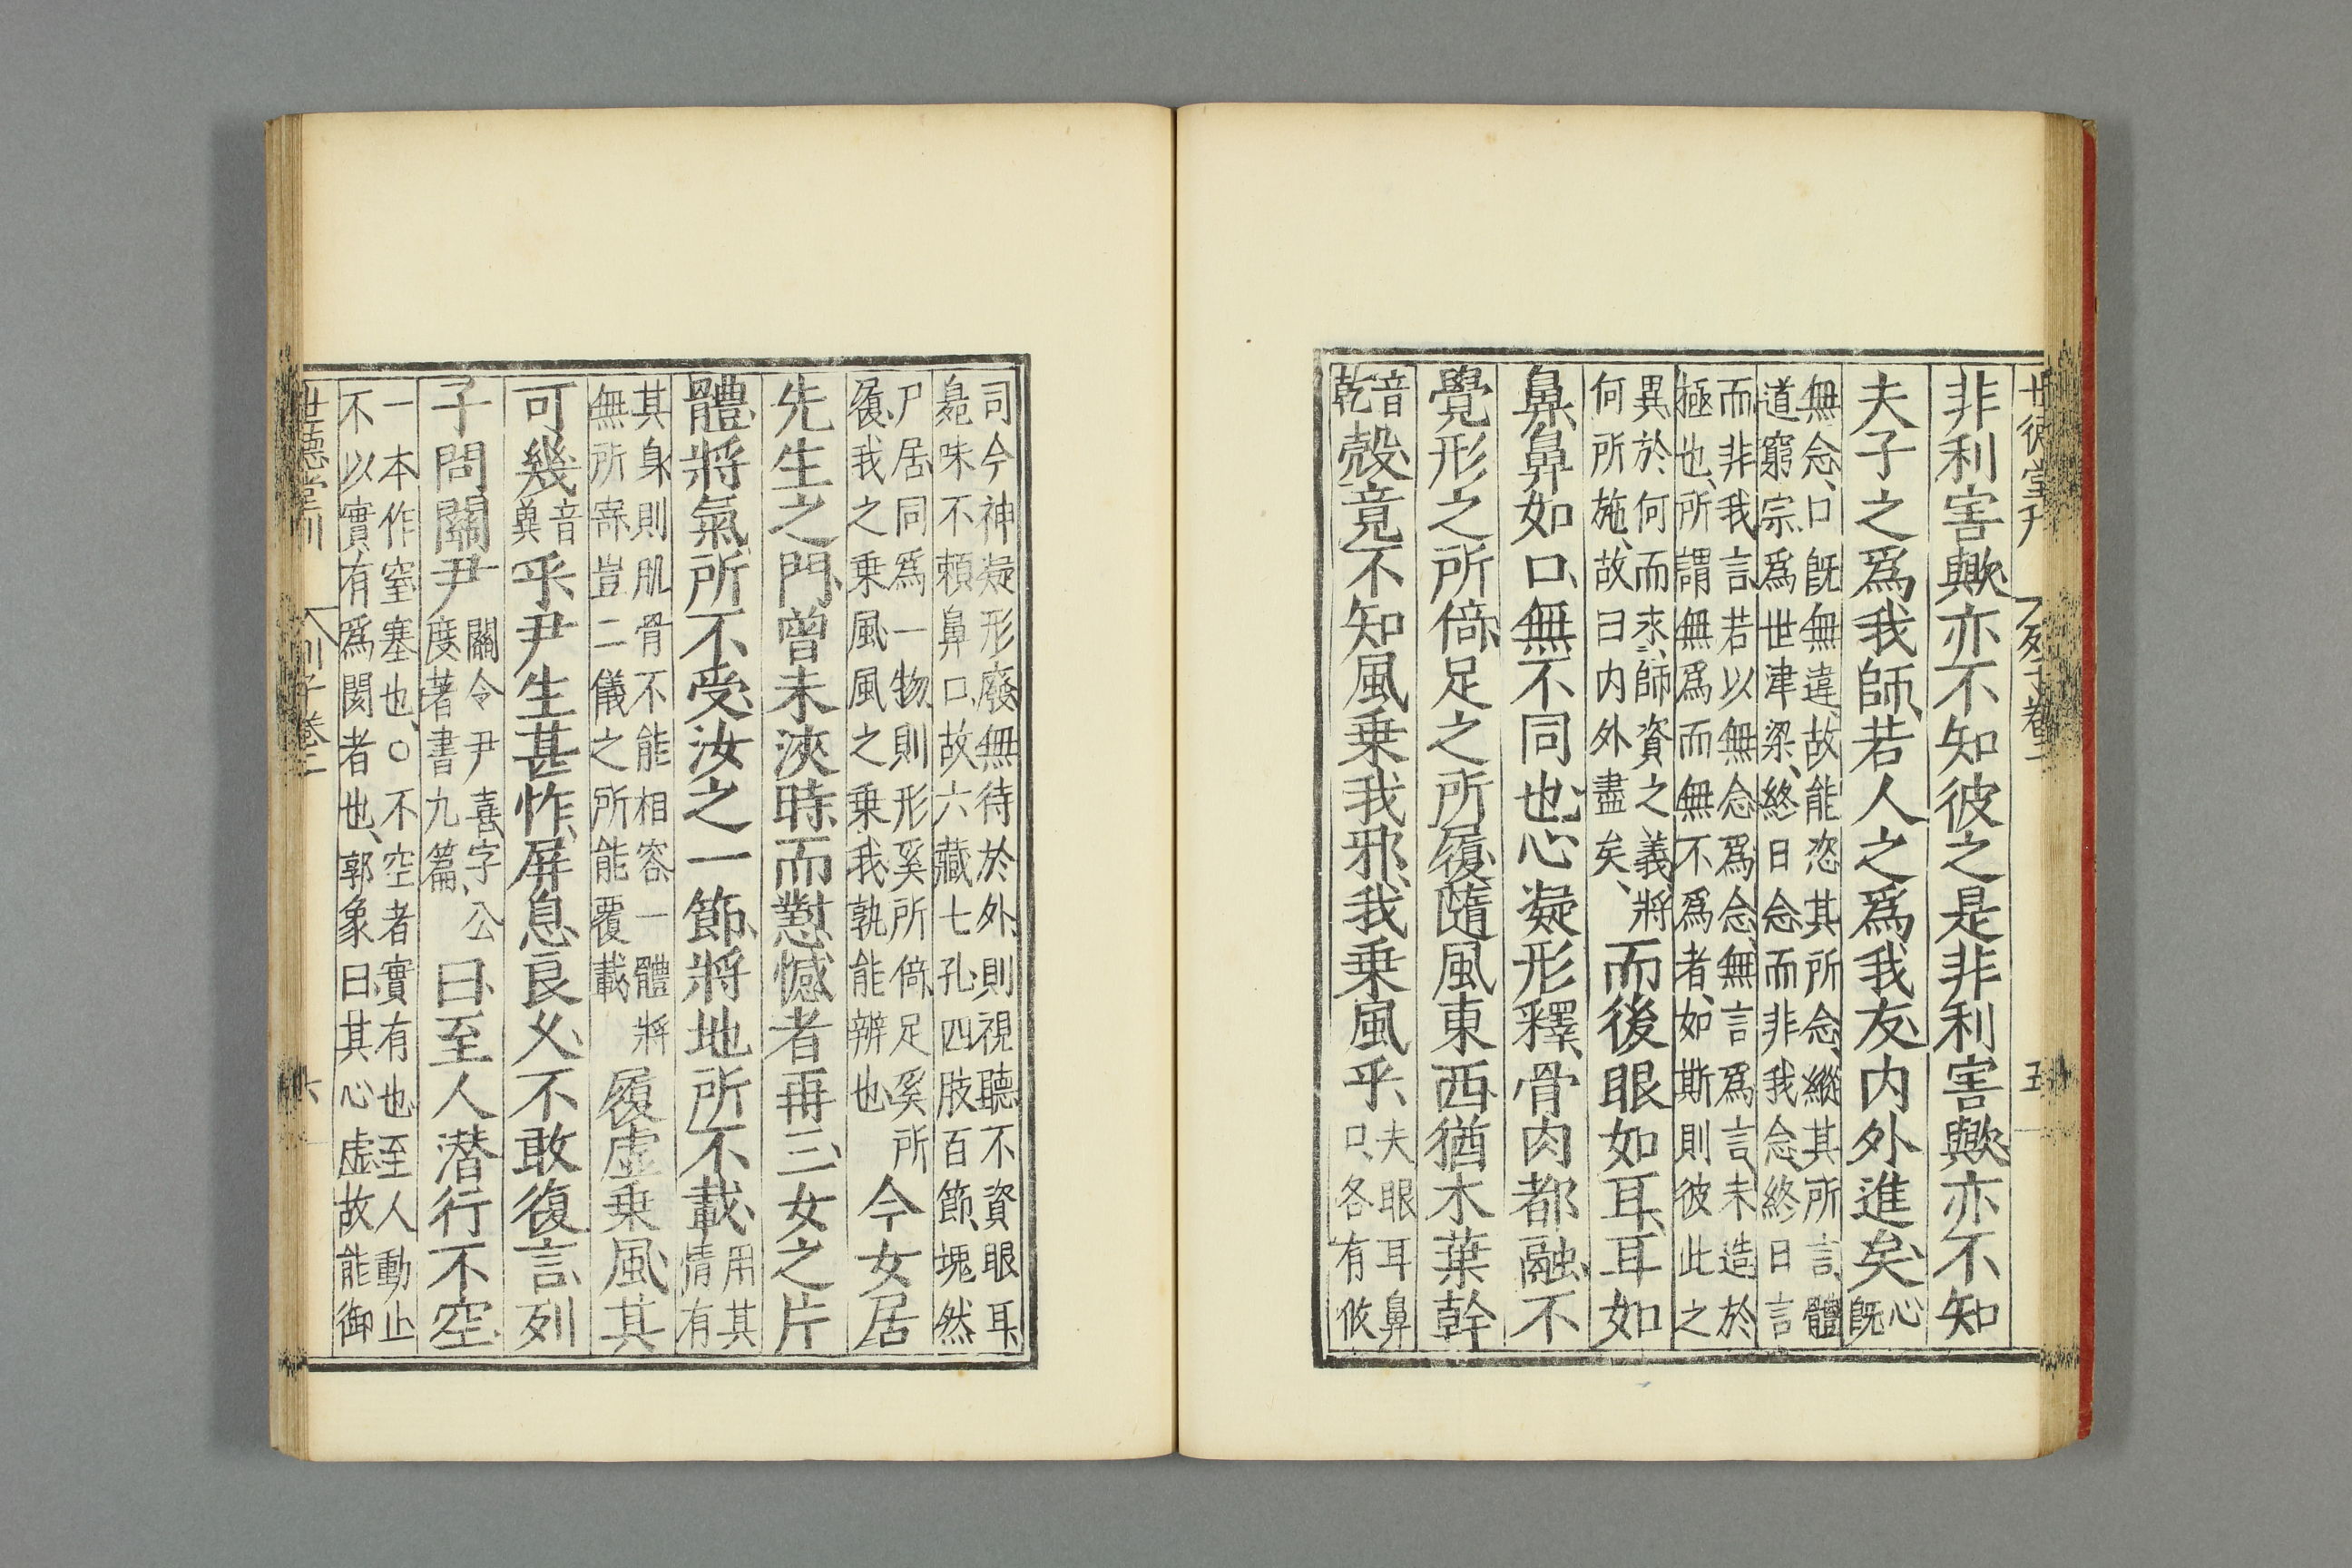 世德堂刊 列子卷二 五
非利害歟亦不知彼之是非利害歟亦不知
夫子之爲我師、若人之爲我友、内外進矣、心
既
無念、口既無違、故能恣其所念、縱其所言、體
道窮宗、爲世津梁、終日念而非我念、終日言
而非我言、若以無念爲念、無言爲言、未造於
極也、所謂無爲而無不爲者、如斯則彼此之
異於何而求、師資之義、將
何所施、故曰内外盡矣、
而後眼如耳、耳如
鼻、鼻如口、無不同也、心凝形釋、骨肉都融、不
覺形之所倚、足之所履、隨風東西、猶木葉幹
音
乾
殼、竟不知風乗我邪、我乗風乎、
夫眼耳鼻
口、各有攸
司、今神凝形廢、無待於外、則視聽不資眼耳、
臭味不賴鼻口、故六藏七孔、四肢百節、塊然
尸居、同爲一物、則形奚所倚、足奚所
履、我之乗風、風之乗我、孰能辨也、
今女居
先生之門、曾未浹時、而懟憾者再三、女之片
體、將氣所不受、汝之一節、將地所不載、
用其
情、有
其身、則肌骨不能相容、一體將
無所寄、豈二儀之所能覆載、
履虛乗風、其
可幾
音
冀
乎、尹生甚怍、屏息良乆、不敢復言、列
子問關尹
關令尹喜、字公
度、著書九篇、
曰、至人潜行不空、
一本作窒塞也、○不空者、實有也、至人動止
不以實有爲閡者也、郭象曰、其心虛、故能御
世德堂刊 列子卷二 六